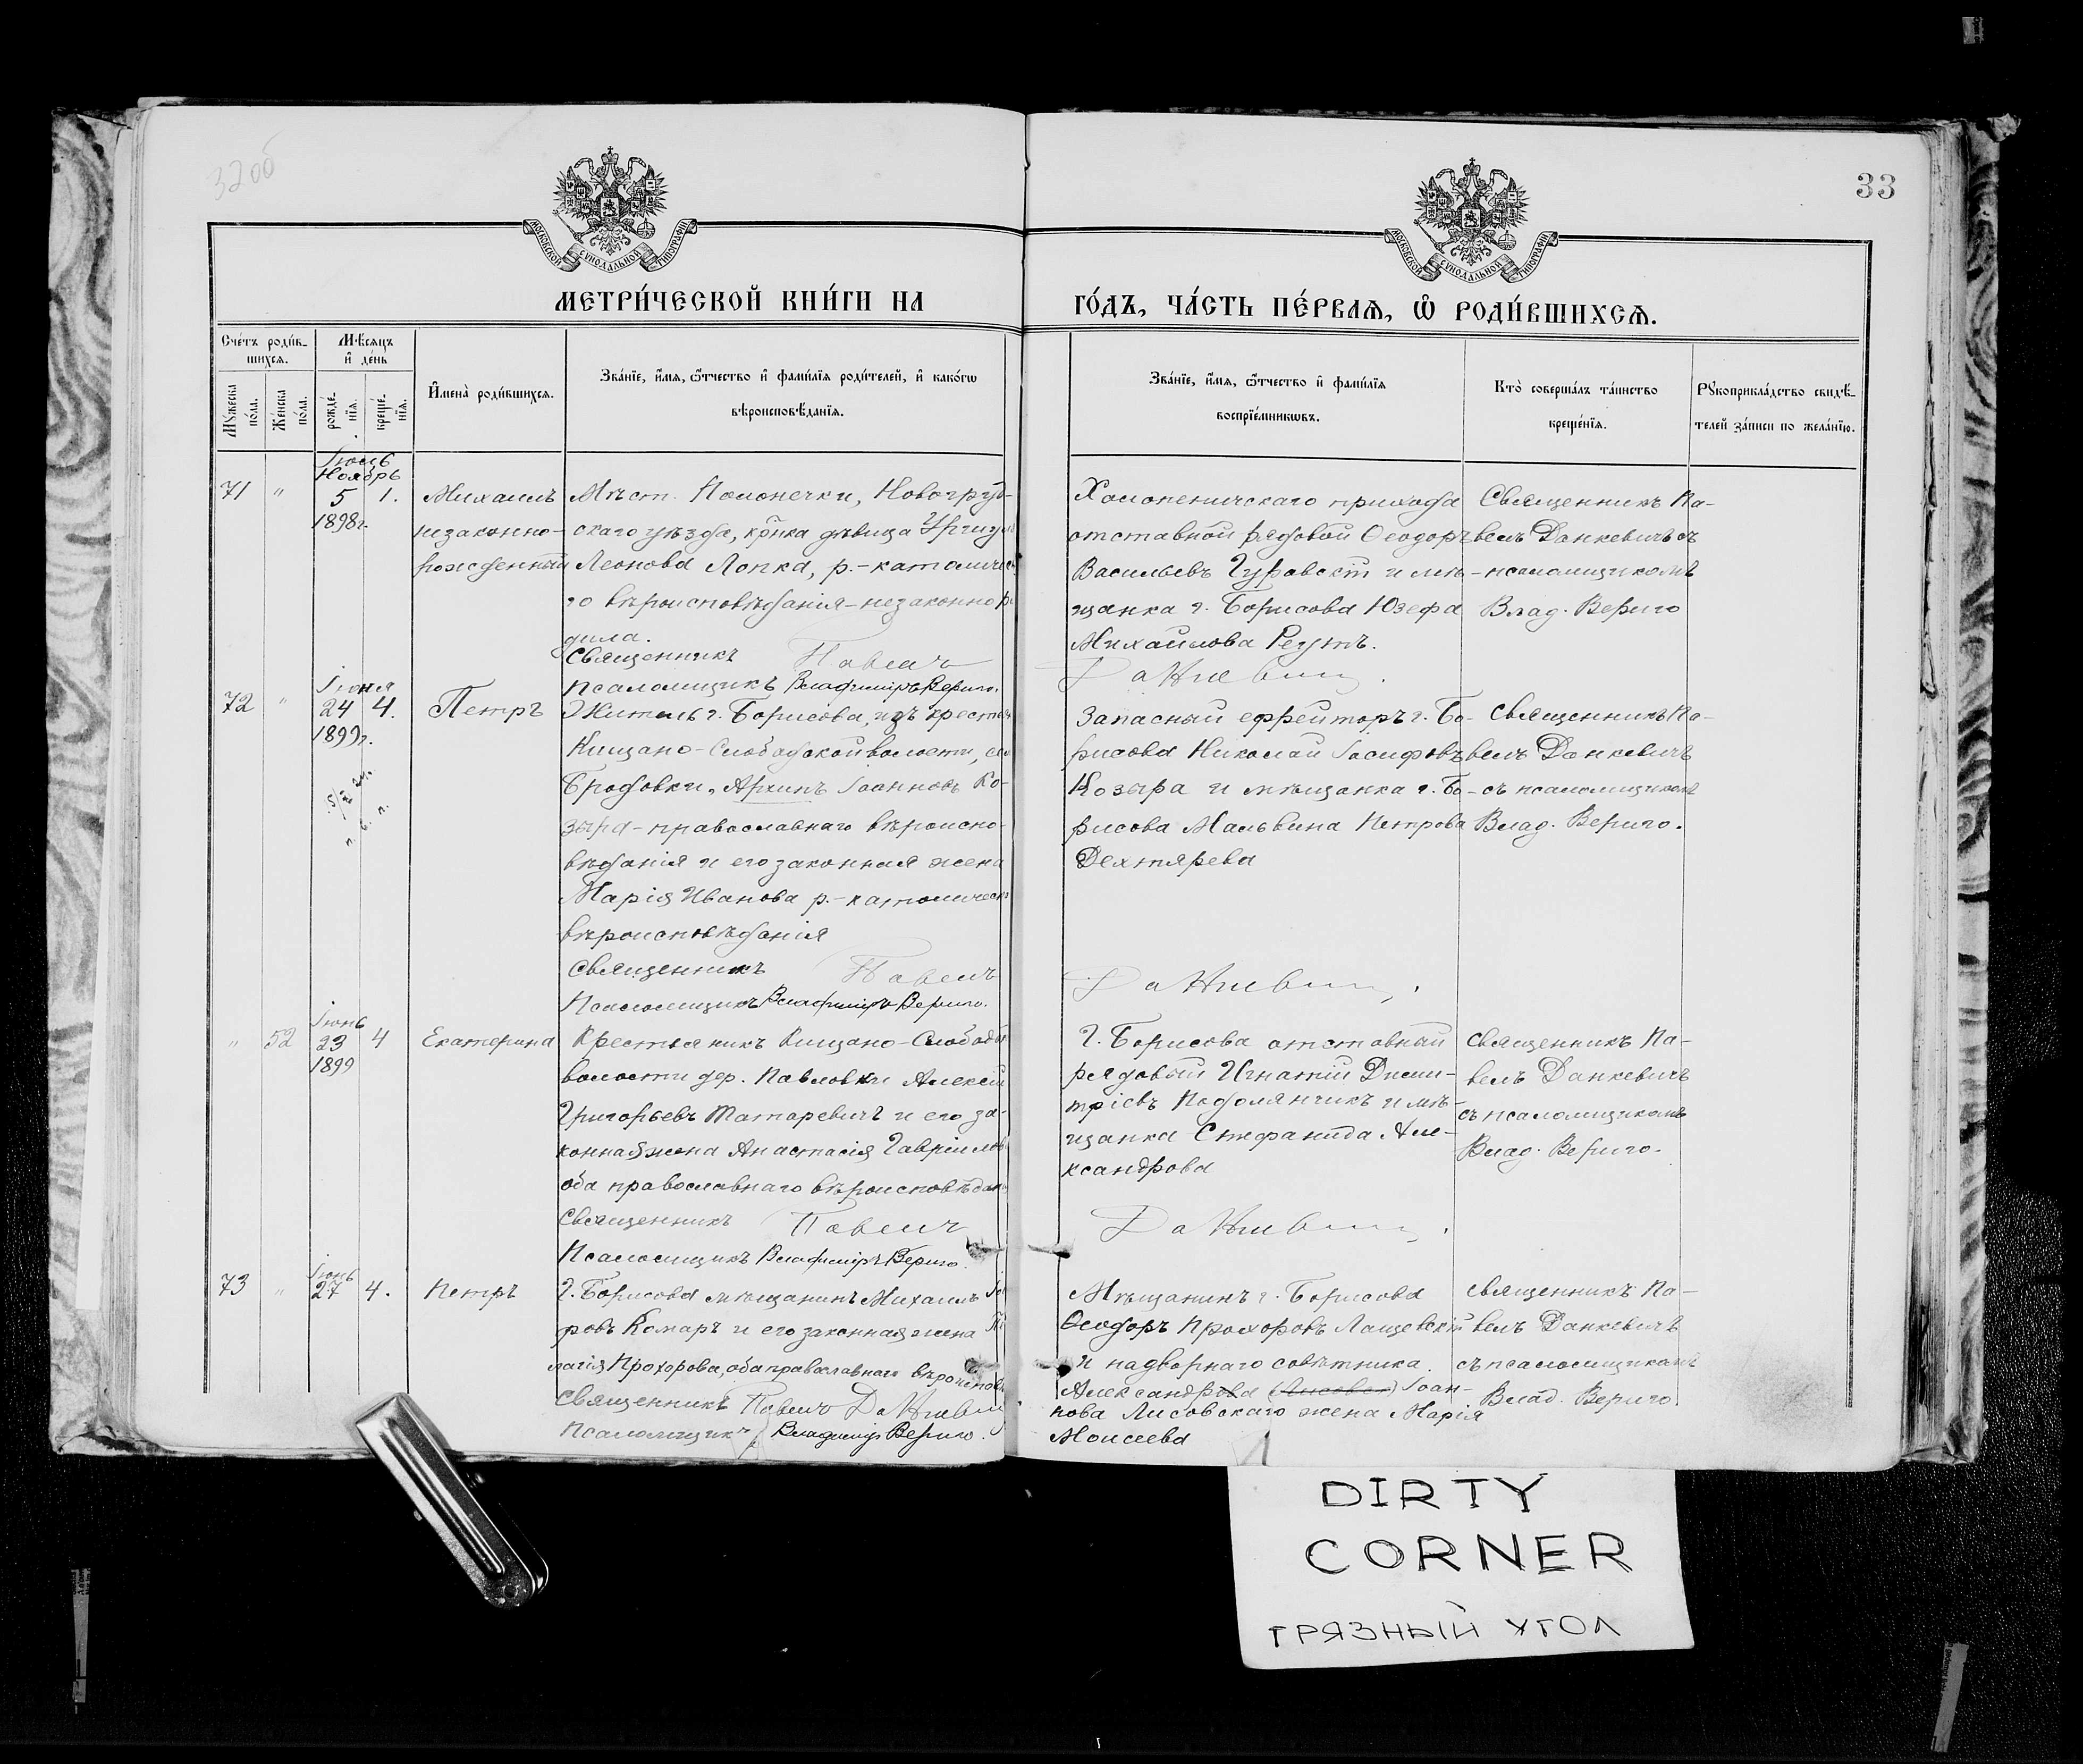 32об
33
МОСКОВСКОЙ СѴНОДАЛЬНОЙ ТИПОГРАФІИ
МОСКОВСКОЙ СѴНОДАЛЬНОЙ ТИПОГРАФІИ
МЕТРИ́ЧЕСКОЙ КНИ́ГИ НА
ГО́ДЪ, ЧА́СТЬ ПЕ́РВАѦ, Ѡ҆ РОДИ́ВШИХСѦ.
Сче́тъ роди́в-
шихсѧ.
Мꙋ́жеска
по́ла.
Же́нска
по́ла.
Мѣ́сѧцъ
и҆ де́нь
рожде́-
нїѧ.
креще́-
нїѧ.
И҆мена̀ роди́вшихсѧ.
Зва́нїе, и҆́мѧ, ѻ҆́тчество и҆ фами́лїѧ роди́телей, и҆ како́гѡ
вѣроисповѣ́данїѧ.
Зва́нїе, и҆́мѧ, ѻ҆́тчество и҆ фами́лїѧ
воспрїе́мникѡвъ.
Кто̀ соверша́лъ та́инство
креще́нїѧ.
Рꙋкоприкла́дство свидѣ́-
телей за́писи по жела́нїю.
Іюль
Ноябрь
71 " 5 1.
1898г.
Михаилъ
незаконно-
рожденный
Мѣст. Полонечки, Новогруд-
скаго уѣзда, кр̃нка дѣвица
Леонова Лопка, р.-католичес
го вѣроисповѣданія-незаконно р
дила.
Священникъ Павелъ
Псаломщикъ Владиміръ Вериго.
Холопеничскаго прихода
отставной рядовой Ѳеодоръ
Васильевъ Гуровскій и мѣ-
щанка г. Борисова Юзефа
Михайлова Реутъ.
Данкевич
Священникъ Па-
велъ Данкевичъ съ
-псаломщикомъ
Влад. Вериго
Іюня
72 " 24 4.
1899г.
Петръ
Житель г. Борисова, изъ крестьян
Кищано-Слободской волости, сел
Бродовки, Архипъ Іоанновъ Ко-
зыра-православнаго вѣроиспо-
вѣданія и его законная жена
Марія Иванова р.-католическ
вѣроисповѣданія
Священникъ Павелъ
Псаломщикъ Владиміръ Вериго.
Запасный ефрейторъ г. Бо-
рисова Николай Іосифовъ
Козыра и мѣщанка г. Бо-
рисова Мальвина Петрова
Дехтярева
Данкевич
Священникъ Па-
велъ Данкевичъ
съ псаломщикомъ
Влад. Вериго.
Іюнь
" 52 23 4
1899
Екатерина
Крестьянинъ Кищано-Слободск
волости дер. Павловки Алексѣй
Григорьевъ Татаревичъ и его за-
конная жена Анастасія Гавріилов
оба православнаго вѣроисповѣдан
Священникъ Павелъ
Псаломщикъ Владиміръ Вериго.
Г. Борисова отставный
рядовый Игнатій Дими-
тріевъ Подолянчикъ и мѣ-
щанка Стефанида Але-
ксандрова
Данкевич
Священникъ Па-
велъ Данкевичъ
съ псаломщикомъ
Влад. Вериго.
Іюнь
73 " 27 4.
Петръ
Г. Борисова мѣщанинъ Михаилъ
ровъ Комаръ и его законная жена
лагія Прохорова, оба православнаго вѣроиспов
Священникъ Павелъ Данкевич
Псаломщикъ Владиміръ Вериго.
Мѣщанинъ г. Борисова
Ѳеодоръ Прохоровъ Лащевскій
и надворнаго совѣтника
Александрова Іоан-
нова Лисовскаго жена Марія
Моисеева
Священникъ Па-
велъ Данкевичъ
съ псаломщикомъ
Влад. Вериго.
DIRTY
CORNER
ГРЯЗНЫЙ УГОЛ